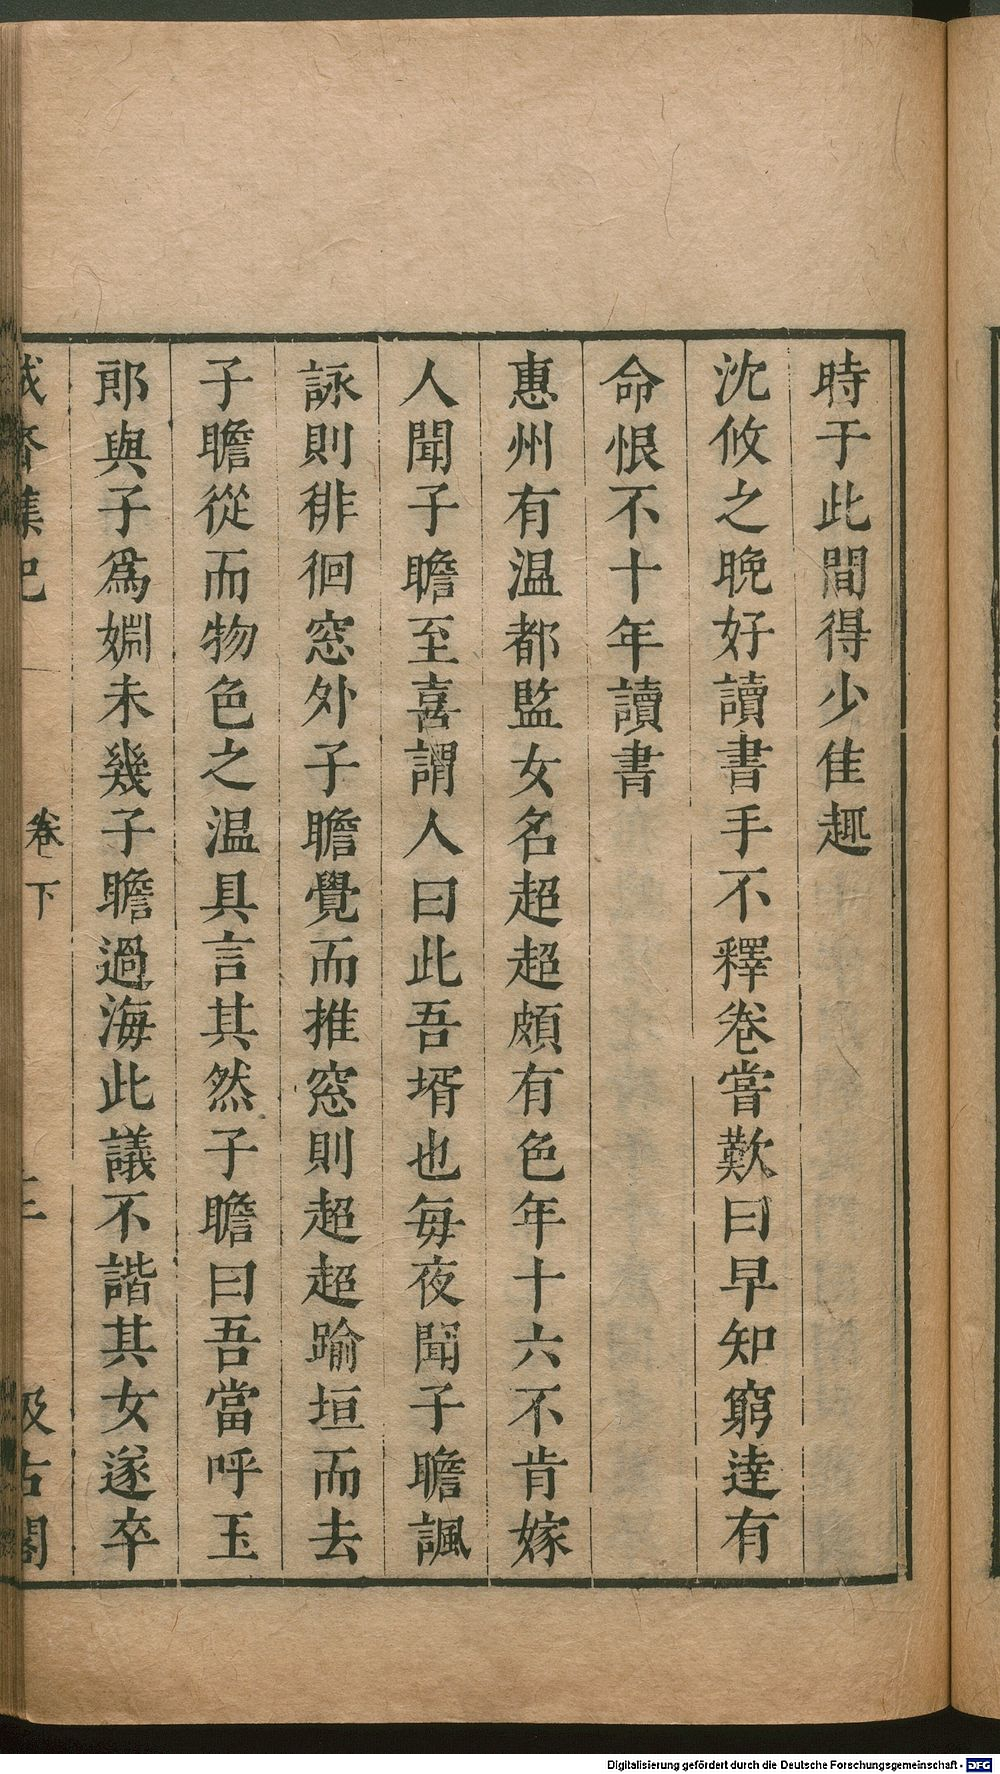 時于此間得少佳趣
沈攸之晚好讀書手不釋卷嘗歎曰早知窮達有
命恨不十年讀書
惠州有温都監女名超超頗有色年十六不肯嫁
人聞子瞻至喜謂人曰此吾壻也每夜聞子瞻諷
詠則徘徊窓外子瞻覺而推窓則超超踰垣而去
子瞻從而物色之温具言其然子瞻曰吾當呼王
郎與子爲婣未幾子瞻過海此議不諧其女遂卒
卷下
汲古閣
Digitalisierung gefördert durch die Deutsche Forschungsgemeinschaft - DFG